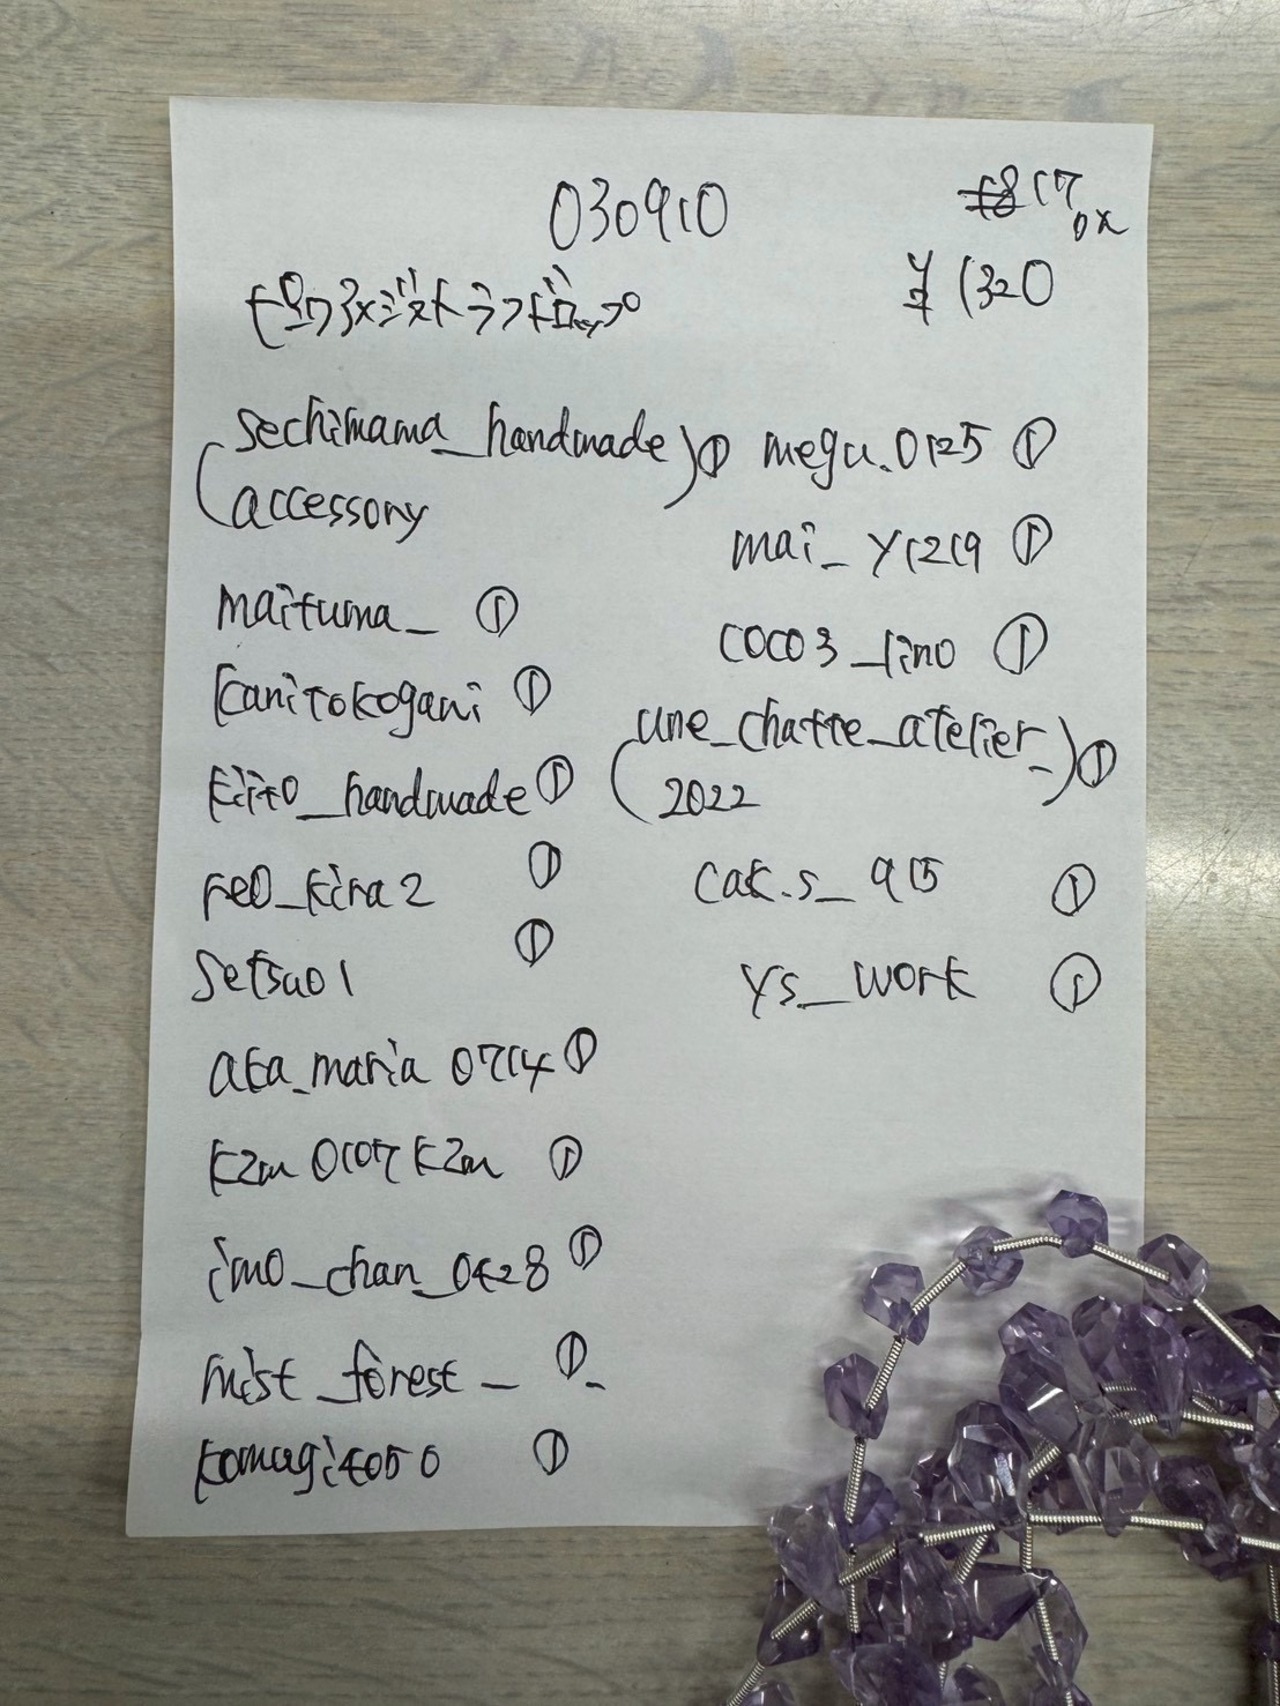 030910
17
¥1320
ピンクアメジストラフドロップ
sechimama_handmade ① 
accessory
maituma_ ①
kanitokogani ①
kiito_handmade ①
reo_kira2 ①
setsuo1 ①
aka_maria0714 ①
kzm0107kzm ①
imo_chan_0428 ①
mist_forest_ ①
komugi4050 ①
megu.0125 ①
mai_y1219 ①
coco3_lino ①
une_chatte_atelier_ ①
2022
cak.s_915 ①
ys_work ①